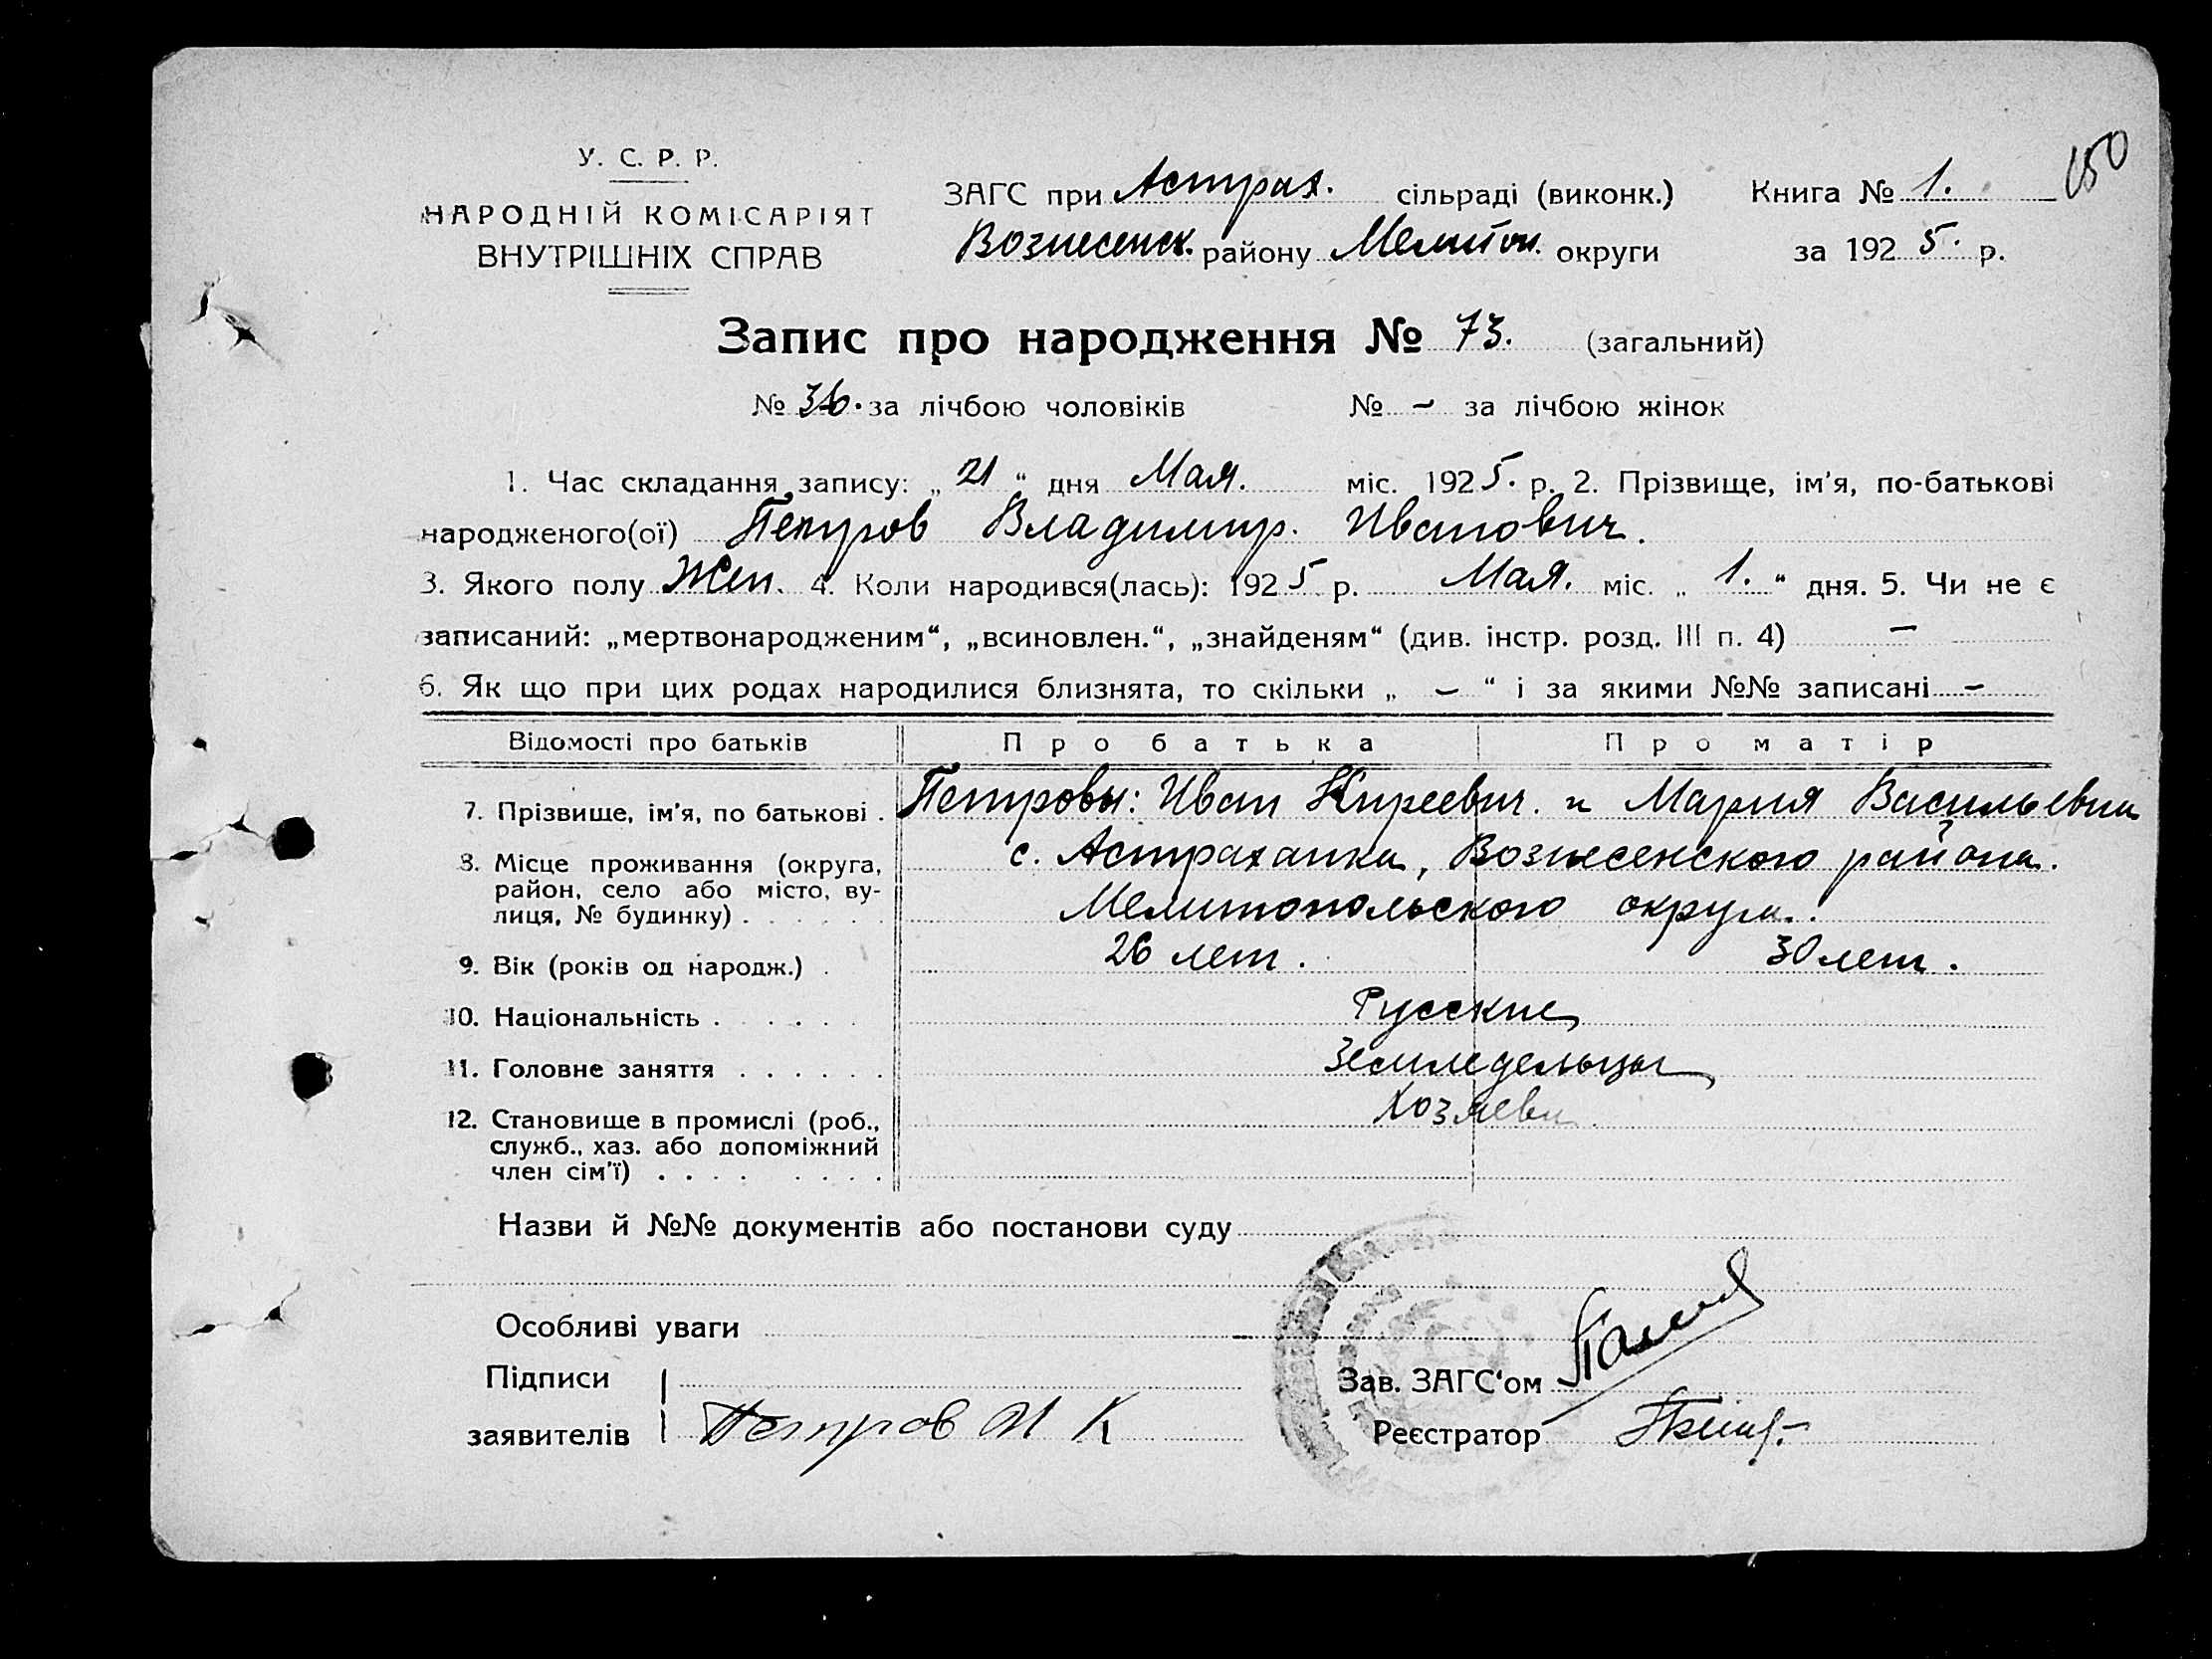 У. С. Р. Р.
НАРОДНІЙ КОМІСАРІЯТ
ВНУТРІШНІХ СПРАВ
ЗАГС при Астрах. сільраді (виконк.)
Вознесенск. району Мелитоп. округи
Книга № 1.
за 1925. р.
150
Запис про народження № 73. (загальний)
№ 36. за лічбою чоловіків № – за лічбою жінок
1. Час складання запису: „21“ дня Мая. міс. 1925. р. 2. Прізвище, ім'я, по-батькові
народженого(ої) Петров Владимир. Иванович.
3. Якого полу Жен. 4. Коли народився(лась): 1925 р. Мая. міс. „1.“ дня. 5. Чи не є
записаний: „мертвонародженим“, „всиновлен.“, „знайденям“ (див. інстр. розд. III п. 4) –
6. Як що при цих родах народилися близнята, то скільки „ – “ і за якими №№ записані –
Відомості про батьків Про батька Про матір
7. Прізвище, ім'я, по батькові . Петровы: Иван Киреевич. и Мария Васильевна
8. Місце проживання (округа, с. Астраханка, Вознесенского района.
район, село або місто, ву-
лиця, № будинку) . . . . . . Мелитопольского округа.
9. Вік (років од народж.) . 26 лет. 30 лет.
10. Національність . . . . . Русские
11. Головне заняття . . . . . . Земледельцы
12. Становище в промислі (роб., Хозяева
служб., хаз. або допоміжний
член сім'ї) . . . . . . . .
Назви й №№ документів або постанови суду
Особливі уваги
Підписи
заявителів Петров И К
Зав. ЗАГС'ом
Реєстратор